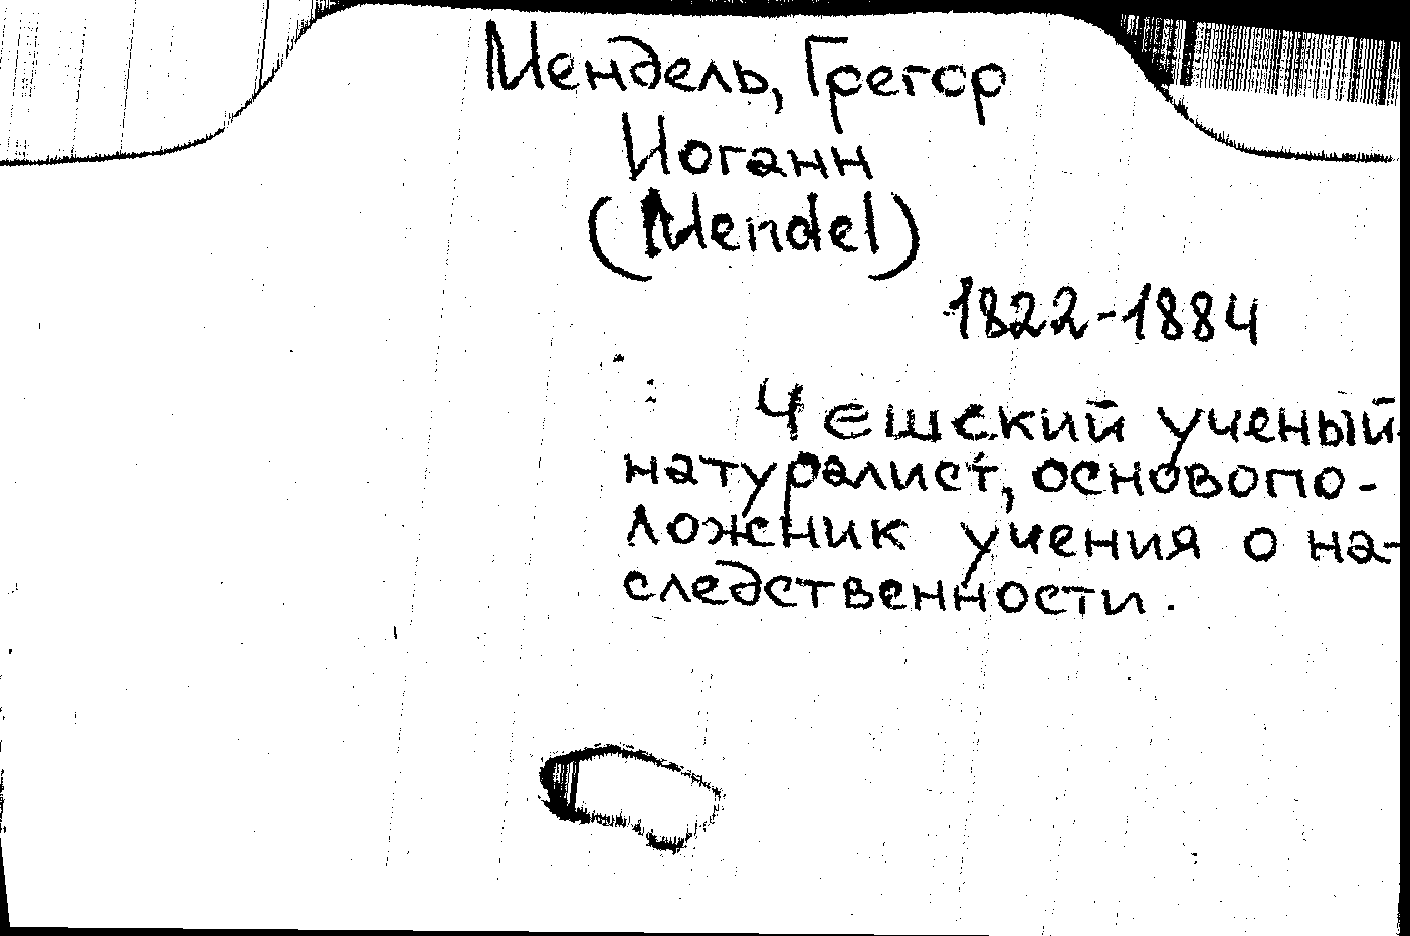 Мендель, Грегор
Иоганн
(Mendel)
1822-1884
Чешский ученый
натуралист, осново­по-
ложник учения о на-
следственности.